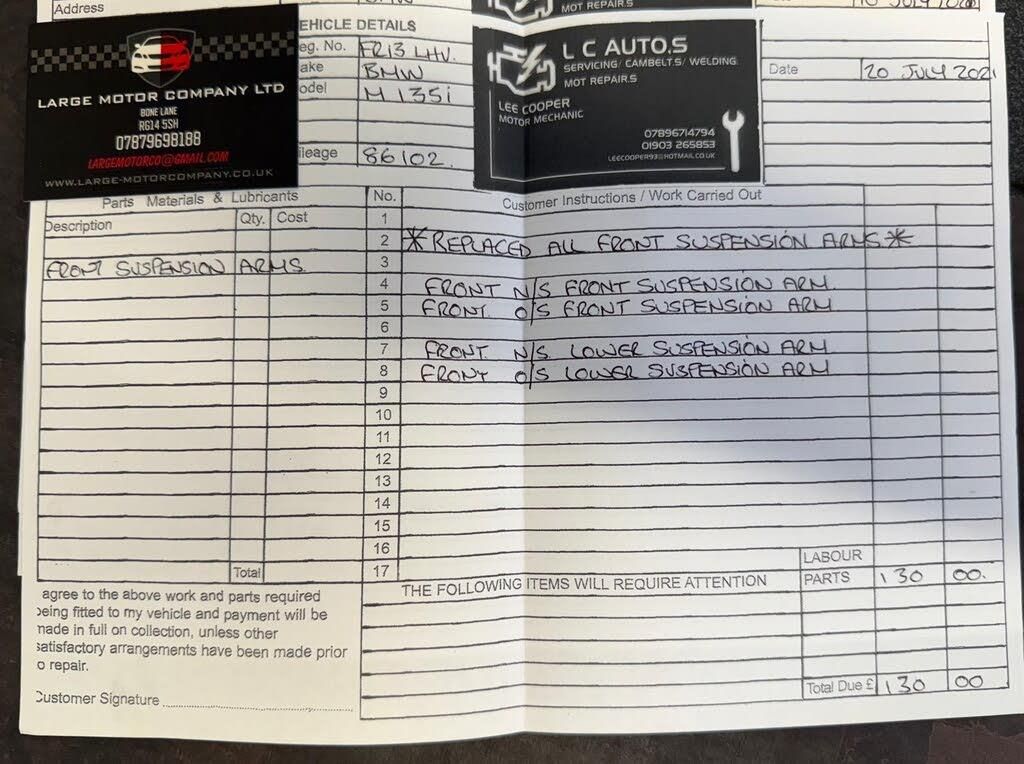 Address
MOT REPAIR.S
VEHICLE DETAILS
eg. No. FR13 LHV.
ake BMW
odel M 135i
ileage 86102.
Date 20 JULY 2021
LARGE MOTOR COMPANY LTD
BONE LANE
RG14 5SH
07879698188
LARGEMOTORCO@GMAIL.COM
WWW.LARGE-MOTORCOMPANY.CO.UK
L C AUTO,S
SERVICING/ CAMBELT.S/ WELDING
MOT REPAIR.S
LEE COOPER
MOTOR MECHANIC
07896714794
01903 265853
LEECOOPER93@HOTMAIL.CO.UK
Parts Materials & Lubricants No. Customer Instructions / Work Carried Out
Description Qty. Cost 1
2 *REPLACED ALL FRONT SUSPENSION ARMS*
FRONT SUSPENSION ARMS 3
4 FRONT N/S FRONT SUSPENSION ARM.
5 FRONT. O/S FRONT SUSPENSION ARM.
6
7 FRONT. N/S. LOWER SUSPENSION ARM
8 FRONT O/S LOWER SUSPENSION ARM
9
10
11
12
13
14
15
16 LABOUR
Total 17 THE FOLLOWING ITEMS WILL REQUIRE ATTENTION PARTS 130 00.
agree to the above work and parts required
being fitted to my vehicle and payment will be
made in full on collection, unless other
satisfactory arrangements have been made prior
o repair.
Customer Signature
Total Due £ 130 00